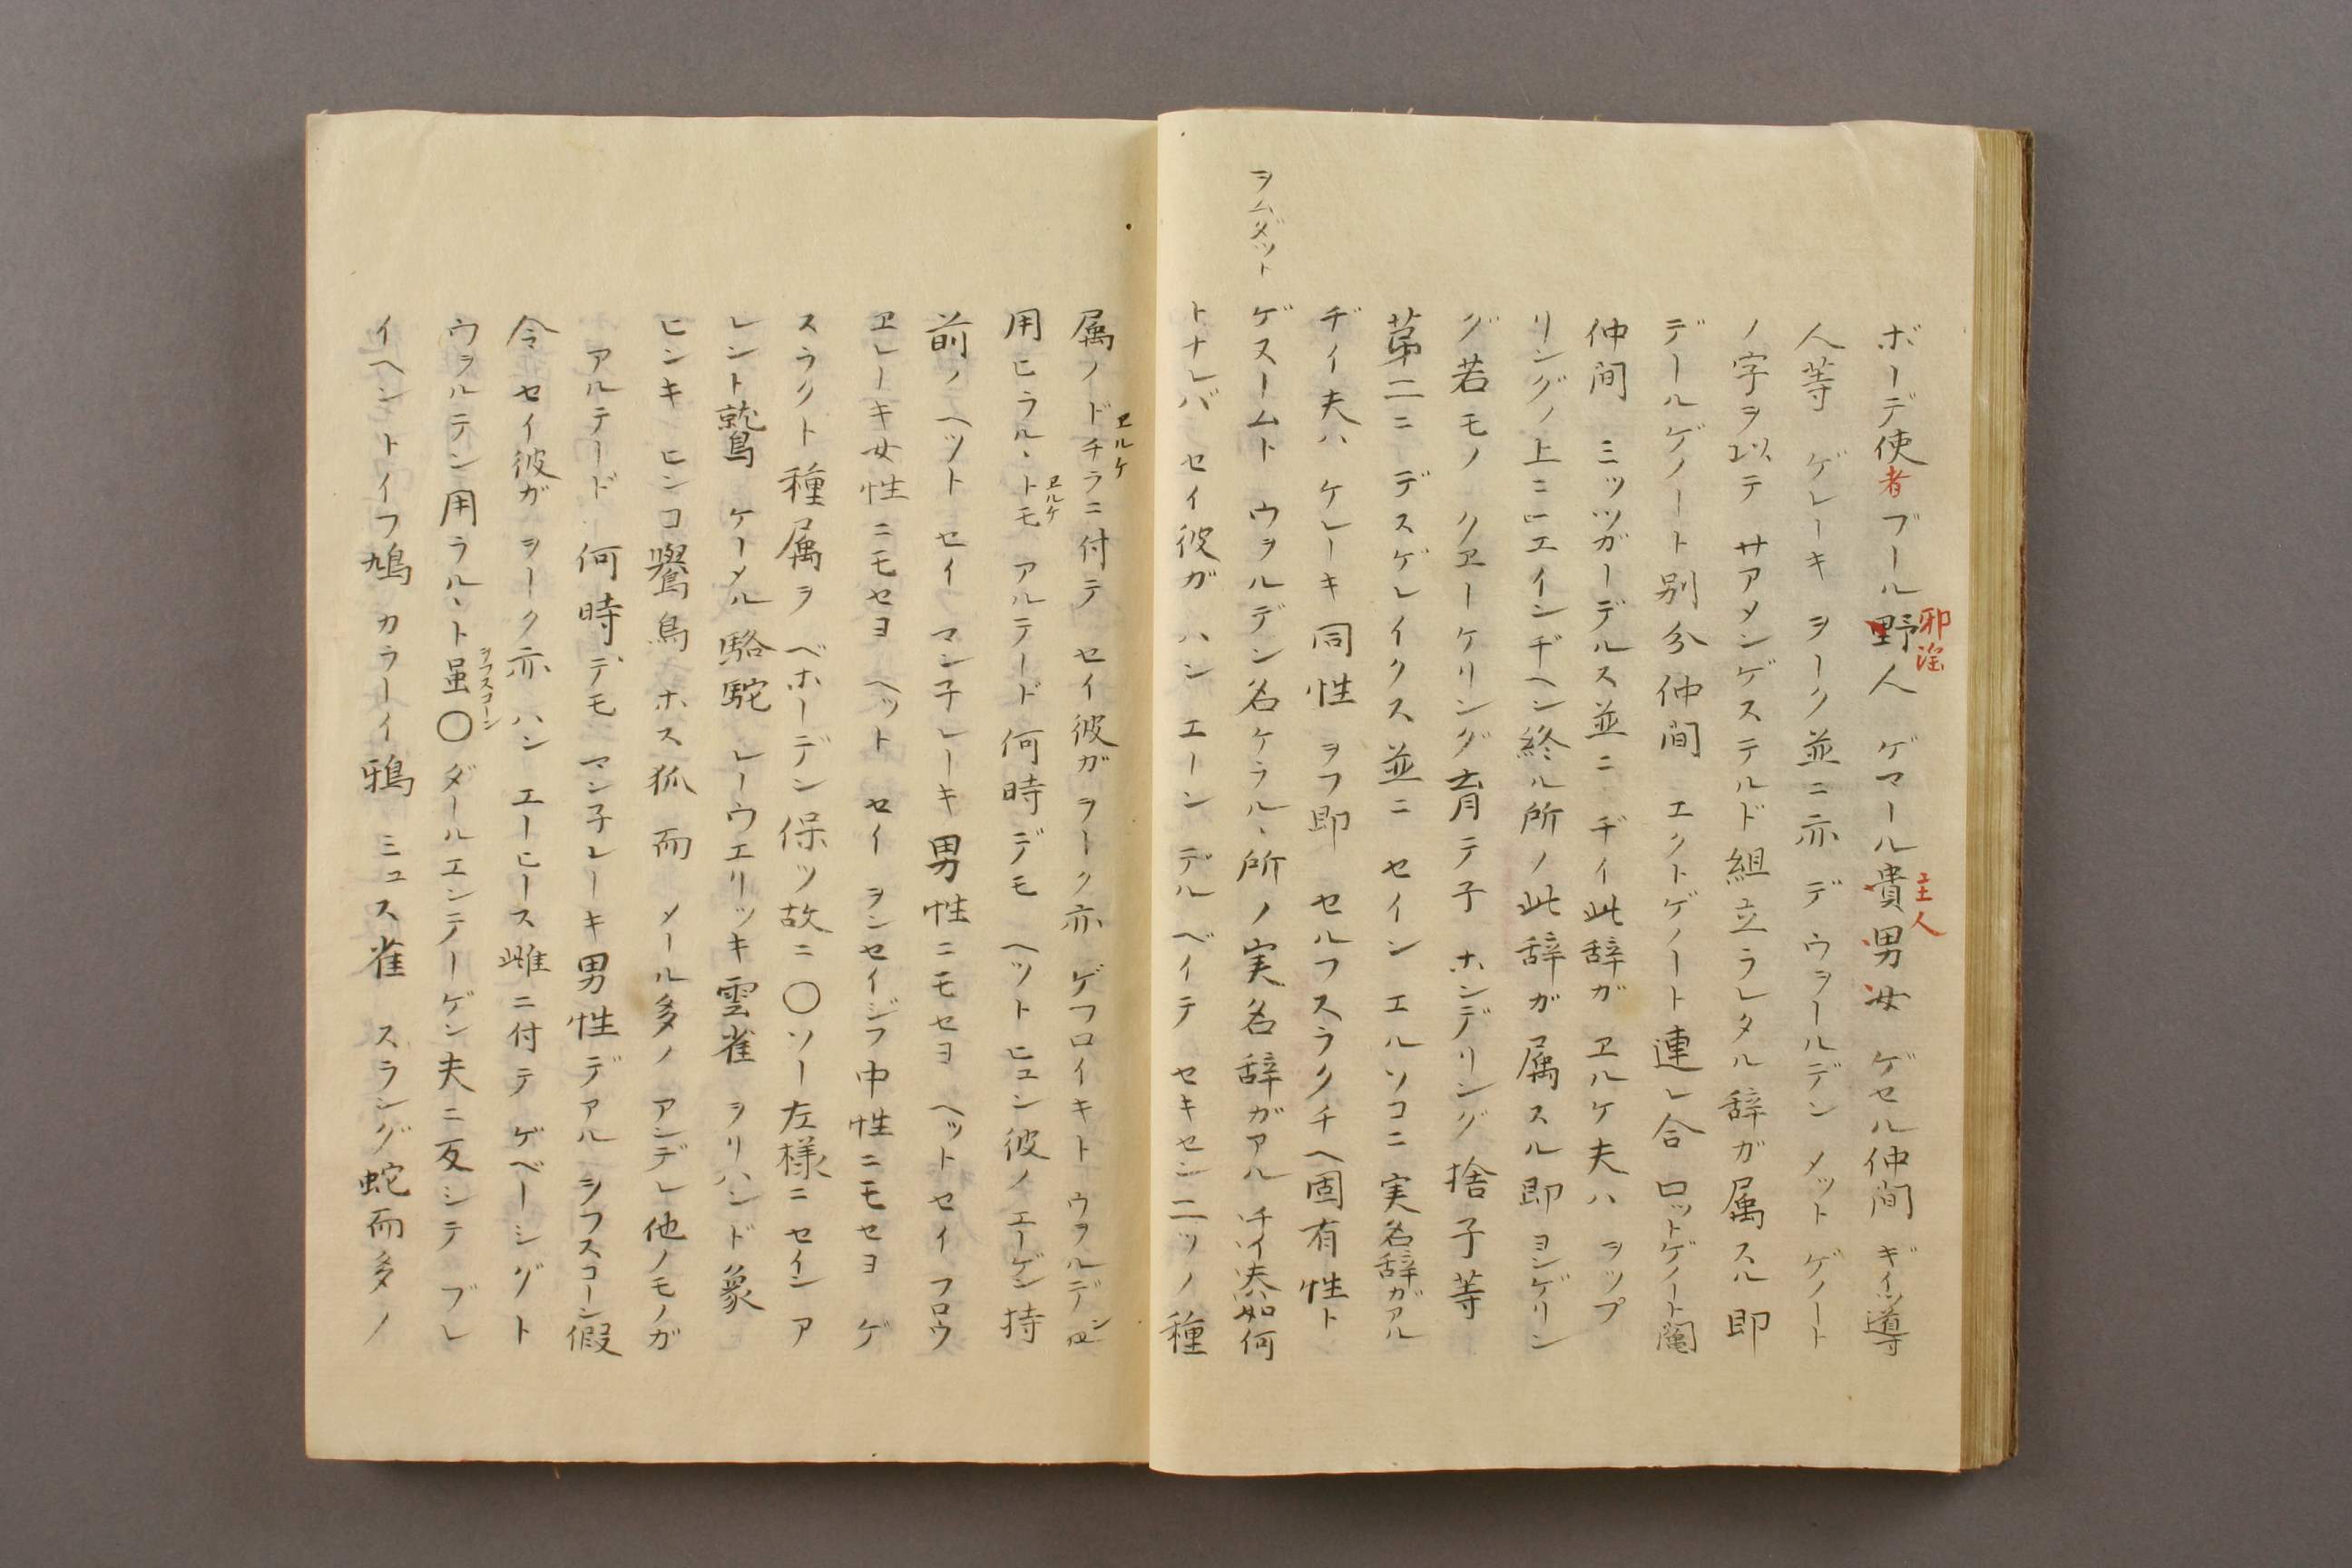 ボーデ使者ブール野人 ゲマール貴男女 ゲセル仲間 ギイツ導
邪淫
主人
人等 ゲレーキ ヲーク並ニ亦 デ ウヲールデン メット ゲノート
ノ字ヲ以テ サアメンゲステルド組立ラレタル辞ガ属スル即
デールゲノート別分仲間 エクトゲノート連レ合 ロットゲノート鬮
仲間 ミッツガーデルス並ニ ヂイ此辞ガ ヱルケ夫ハ ヲップ
リングノ上ニ エインヂヘン終ル所ノ此辞ガ属スル即 ヨンゲリン
グ若モノ クヱーケリング育テ子 ホンデリング捨子等
第二ニ デスゲレイクス並ニ セイン エルソコニ実名辞ガアル
ヂイ夫ハ ゲレーキ同性 ヲフ即 セルフスラクチヘ固有性ト
ヲムダット
ゲスームト ウヲルデン名ケラル、所ノ実名辞ガアル 如何
トナレバ セイ彼ガ ハン エーン デル ベイテ セキセン二ツノ種
属ノドチラニ付テ セイ彼ガ ヲーク亦 ゲフロイキト ウヲルデン
ヱルケ
用ヒラル、トモ アルテード何時デモ ヘット ヒュン彼ノ エーゲン持
ヱルケ
前ノ ヘット セイ マン子レーキ男性ニモセヨ ヘット セイ フロウ
ヱレーキ女性ニモセヨ ヘット セイ ヲンセイジフ中性ニモセヨ ゲ
スラクト種属ヲ ベホーデン保ツ故ニ〇ソー左様ニ セイン ア
レント鷲 ケーメル駱駝 レーウエリッキ雲雀 ヲリハンド象
ヒンキ ヒンコ鸒鳥 ホス狐 而 メール多ノ アンデレ他ノモノガ
アルテード 何時デモ マン子レーキ男性デアル ヲフスコーン假
令 セイ彼ガ ヲーク亦 ハン エーヒース雌ニ付テ ゲベーシグト
ウヲルテン用ラル、ト虽〇ダールエンテーゲン夫ニ反シテ ブレ
ヲフスコーン
イヘントイフ鳩 カラーイ鴉 ミュス雀 スラング蛇而多ノ